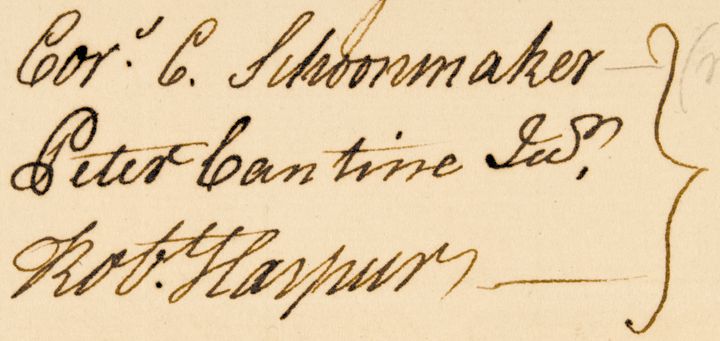 Cor.s C. Schoonmaker
Peter Cantine Jun.
Rob.t Harpur